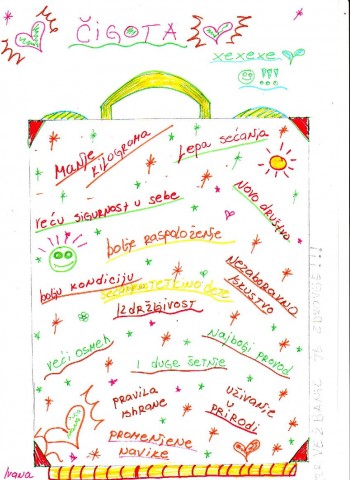 ČIGOTA
xexexe
!!!
Manje kilograma
Lepa sećanja
Novo društvo
veću sigurnost u sebe
bolje raspoloženje
Nezaboravno iskustvo
bolju kondiciju
Izdržljivost
veći osmeh
Najbolji provod
i duge šetnje
pravila ishrane
uživanje u prirodi
promenjene navike
Ivana